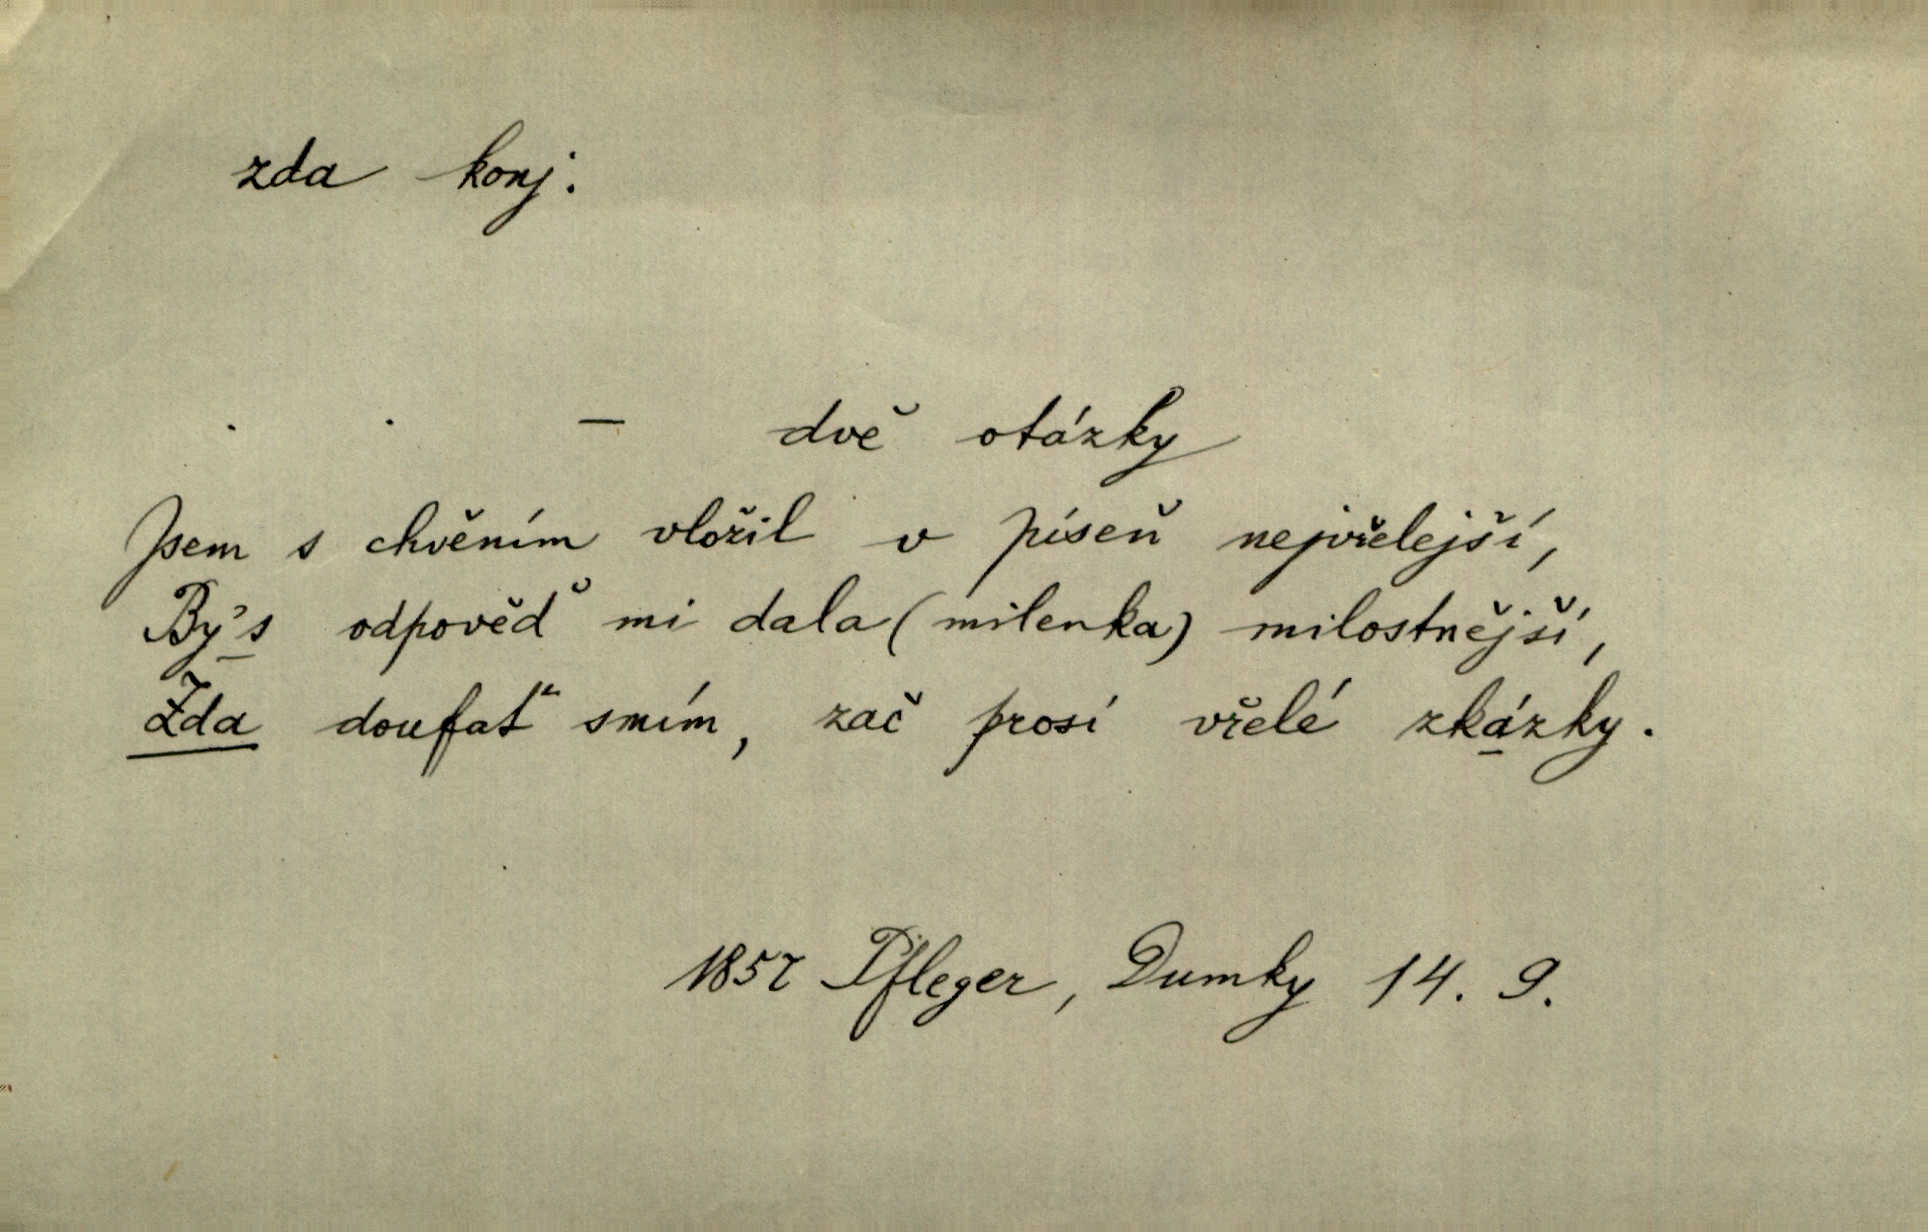 zda konj.
. . — dvě otázky
Jsem s chvěním vložil v píseň nejvřelejší,
By's odpověď mi dala (milenka) milostnější,
Zda doufať smím, zač prosí vřelé zkázky.
1857 Pfleger, Dumky 14. 9.